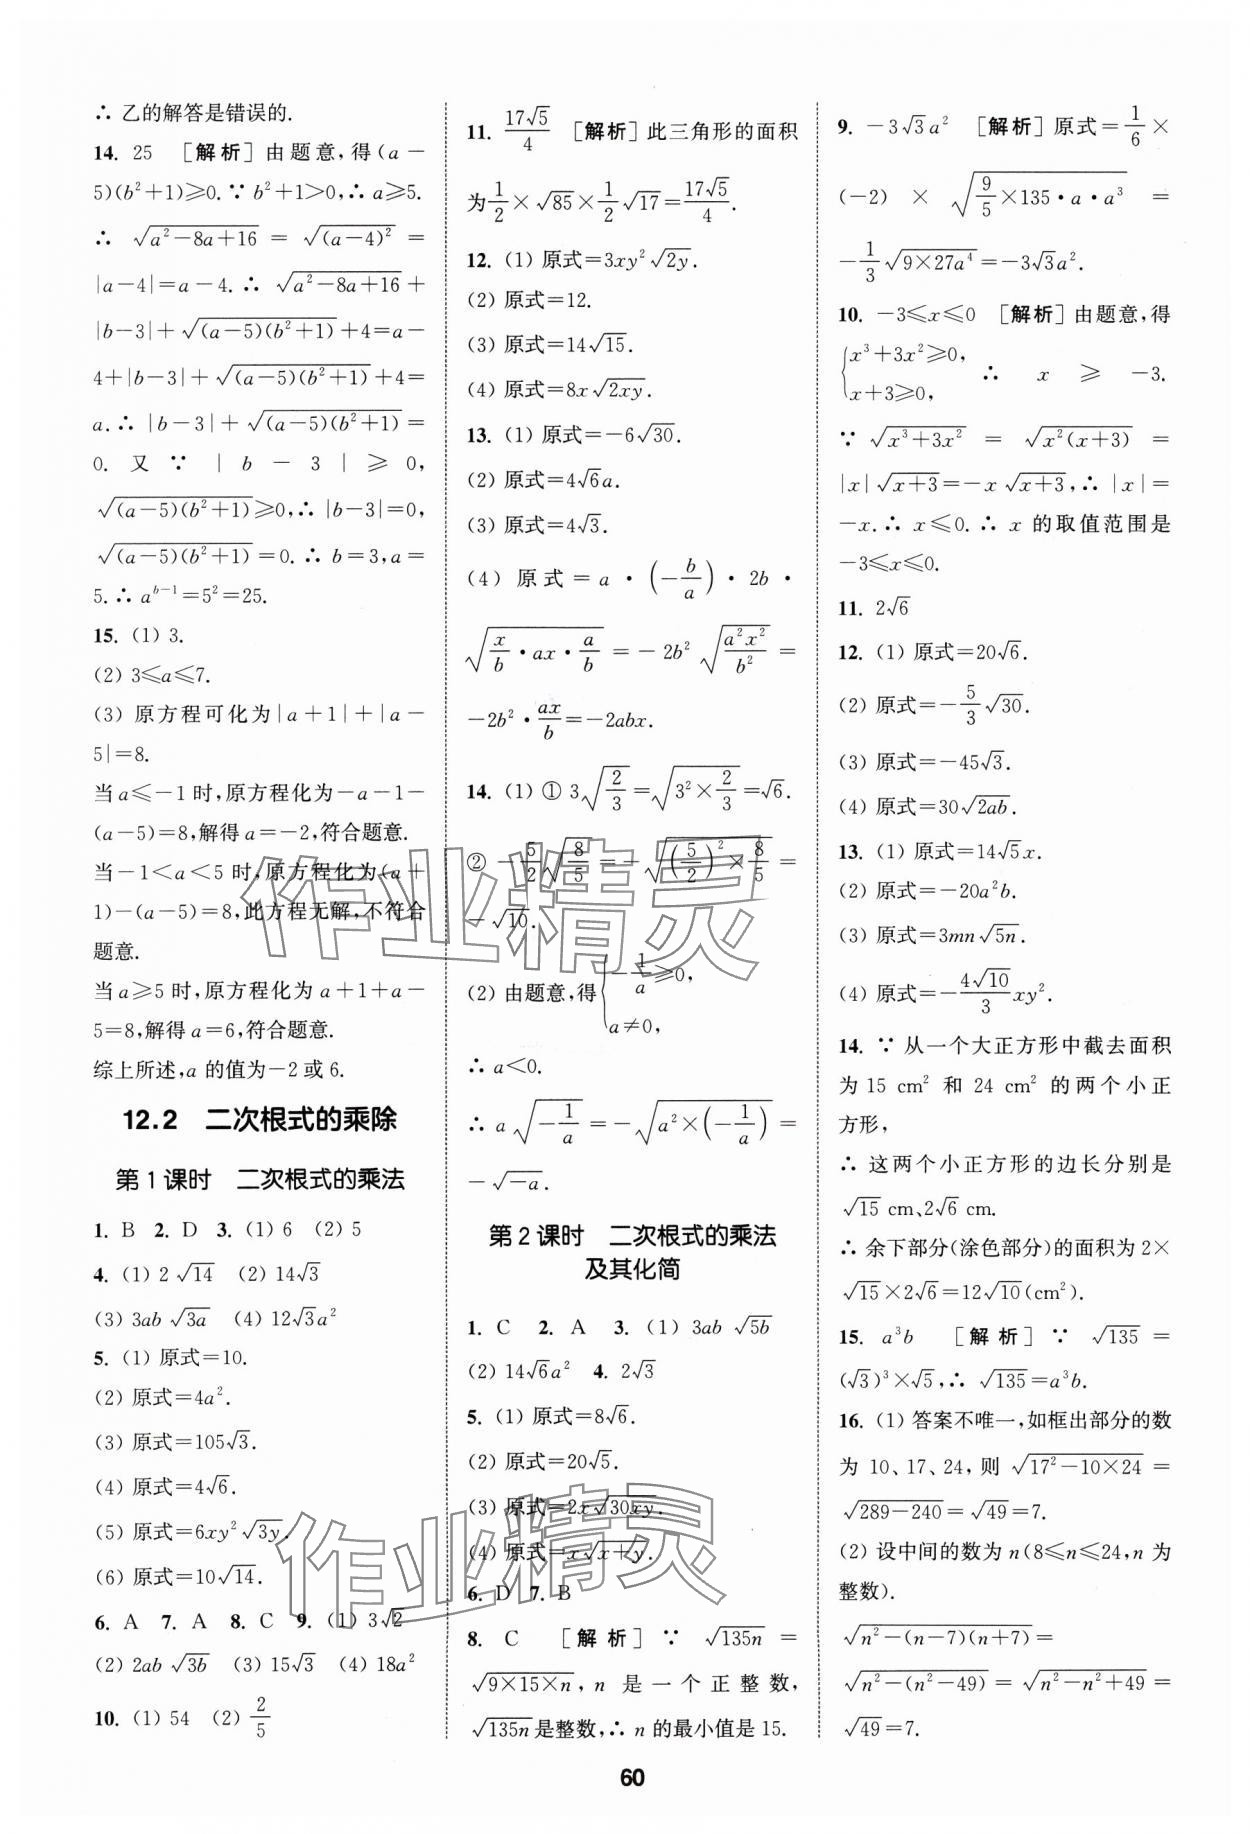 ∴ 乙的解答是错误的.
14. 25 [解析]由题意,得(a-
5)(b²+1)≥0.∵ b²+1>0,∴ a≥5.
∴ √(a²-8a+16) = √((a-4)²) =
|a-4|=a-4.∴ √(a²-8a+16)+
|b-3|+√((a-5)(b²+1))+4=a-
4+|b-3|+√((a-5)(b²+1))+4=
a.∴ |b-3|+√((a-5)(b²+1))=
0. 又 ∵ |b-3|≥0,
√((a-5)(b²+1))≥0,∴ |b-3|=0,
√((a-5)(b²+1))=0.∴ b=3,a=
5.∴ a^(b-1)=5²=25.
15. (1) 3.
(2) 3≤a≤7.
(3) 原方程可化为|a+1|+|a-
5|=8.
当a≤-1时,原方程化为-a-1-
(a-5)=8,解得a=-2,符合题意.
当-1<a<5时,原方程化为(a+
1)-(a-5)=8,此方程无解,不符合
题意.
当a≥5时,原方程化为a+1+a-
5=8,解得a=6,符合题意.
综上所述,a的值为-2或6.
12.2 二次根式的乘除
第1课时 二次根式的乘法
1. B 2. D 3. (1) 6 (2) 5
4. (1) 2√14 (2) 14√3
(3) 3ab√(3a) (4) 12√3a²
5. (1) 原式=10.
(2) 原式=4a².
(3) 原式=105√3.
(4) 原式=4√6.
(5) 原式=6xy²√(3y).
(6) 原式=10√14.
6. A 7. A 8. C 9. (1) 3√2
(2) 2ab√(3b) (3) 15√3 (4) 18a²
10. (1) 54 (2) 2/5
11. 17√5/4 [解析]此三角形的面积
为1/2×√85×1/2√17=17√5/4.
12. (1) 原式=3xy²√(2y).
(2) 原式=12.
(3) 原式=14√15.
(4) 原式=8x√(2xy).
13. (1) 原式=-6√30.
(2) 原式=4√6a.
(3) 原式=4√3.
(4) 原式=a·(-b/a)·2b·
√(x/b·ax·a/b)=-2b²√(a²x²/b²)=
-2b²·ax/b=-2abx.
14. (1) ① 3√(2/3)=√(3²×2/3)=√6.
② -5/2√(8/5)=-√((5/2)²×8/5)=
-√10.
(2) 由题意,得{-1/a≥0,
a≠0,
∴ a<0.
∴ a√(-1/a)=-√(a²×(-1/a))=
-√(-a).
第2课时 二次根式的乘法
及其化简
1. C 2. A 3. (1) 3ab√(5b)
(2) 14√6a² 4. 2√3
5. (1) 原式=8√6.
(2) 原式=20√5.
(3) 原式=2x√(30xy).
(4) 原式=x√(x+y).
6. D 7. B
8. C [解析] ∵ √(135n) =
√(9×15×n),n是一个正整数,
√(135n)是整数,∴ n的最小值是15.
9. -3√3a² [解析]原式=1/6×
(-2)×√(9/5×135·a·a³)=
-1/3√(9×27a⁴)=-3√3a².
10. -3≤x≤0 [解析]由题意,得
{x³+3x²≥0,
x+3≥0, ∴ x≥-3.
∵ √(x³+3x²)=√(x²(x+3))=
|x|√(x+3)=-x√(x+3),∴ |x|=
-x.∴ x≤0.∴ x的取值范围是
-3≤x≤0.
11. 2√6
12. (1) 原式=20√6.
(2) 原式=-5/3√30.
(3) 原式=-45√3.
(4) 原式=30√(2ab).
13. (1) 原式=14√5x.
(2) 原式=-20a²b.
(3) 原式=3mn√(5n).
(4) 原式=-4√10/3xy².
14. ∵ 从一个大正方形中截去面积
为15 cm²和24 cm²的两个小正
方形,
∴ 这两个小正方形的边长分别是
√15 cm、2√6 cm.
∴ 余下部分(涂色部分)的面积为2×
√15×2√6=12√10(cm²).
15. a³b [解析] ∵ √135 =
(√3)³×√5,∴ √135=a³b.
16. (1) 答案不唯一,如框出部分的数
为10、17、24,则√(17²-10×24)=
√(289-240)=√49=7.
(2) 设中间的数为n(8≤n≤24,n为
整数).
√(n²-(n-7)(n+7))=
√(n²-(n²-49))=√(n²-n²+49)=
√49=7.
60
作业精灵
作业精灵